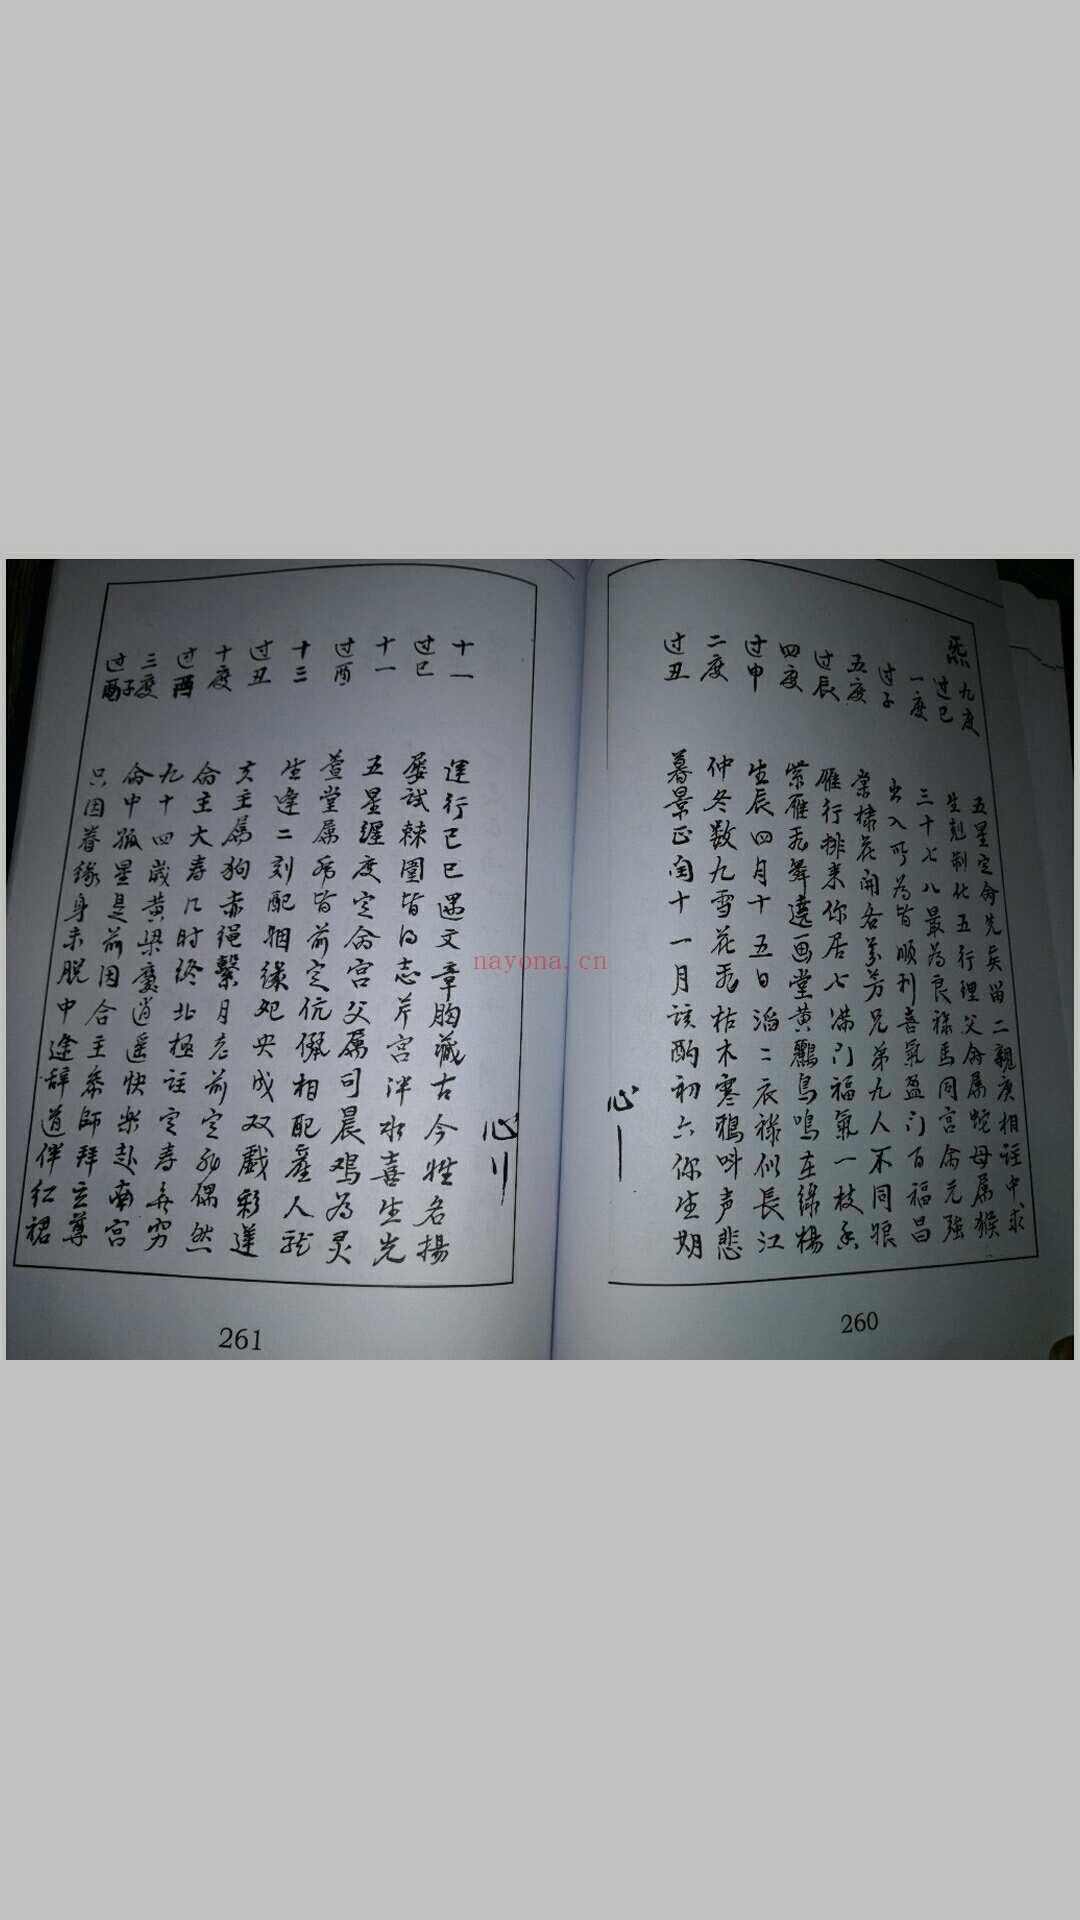 九度
过巳
一度
过子
五度
过辰
四度
过申
二度
过丑
五星定命先矣留二親庚相註中求
生剋制化五行理父命属蛇母属猴
三十七八最為良禄馬同宫命元強
出入所為皆顺利喜氣盈门百福昌
棠棣花開各芬芳兄弟九人不同娘
雁行排来你居七满门福氣一枝香
紫雁飛舞遶画堂黄鸝鳥鳴在綠楊
生辰四月十五日滔二衣禄似長江
仲冬数九雪花飛枯木寒鴉叫声悲
暮景正閏十一月該酌初六你生期
心一
260
十一
过巳
十一
过酉
十三
过丑
十度
过酉
三度
过子
運行己巳遇文章胸藏古今姓名揚
屡試棘圍皆得志芹宫泮水喜生光
五星纏度定命宫父属司晨鸡為灵
萱堂属虎皆前定伉儷相配產人龍
生逢二刻配姻缘妃央成双戯彩蓮
夫主属狗赤绳繫月老前定非偶然
命主大寿几时终北極註定寿無穷
九十四歳黄梁夢逍遥快樂赴南宫
命中孤星是前因合主叅師拜玄尊
只因眷缘身未脱中途辞道伴红裙
心川
261
nayona.cn